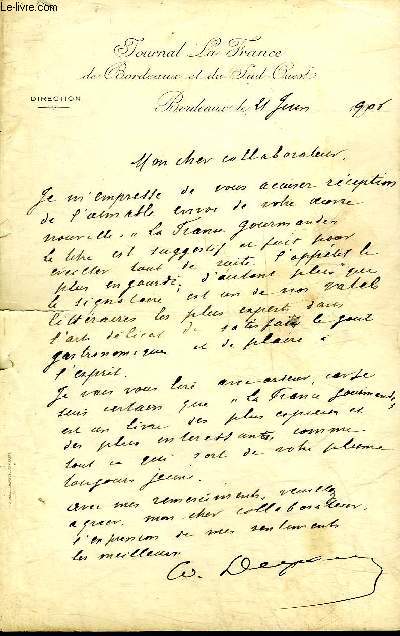 Le-livre.com
Journal La France
de Bordeaux et du Sud-Ouest
DIRECTION
Bordeaux le 21 Juin 190
Mon cher collaborateur,
Je m'empresse de vous accuser réception
de l'aimable envoi de votre œuvre
nouvelle, "La France gourmande"
Le titre est suggestif et fait pour
éveiller tout de suite l'appétit le
plus engourdi, d'autant plus que
le signataire est un de nos
littéraires les plus experts dans
l'art délicat de satisfaire le goût
gastronomique et de plaire à
l'esprit.
Je vais vous lire avec ardeur, car je
suis certain que "La France gourmande"
est un livre des plus copieux et
des plus intéressants, comme
tout ce qui sort de votre plume
toujours jeune.
Avec mes remerciements, veuillez
agréer, mon cher collaborateur,
l'expression de mes sentiments
les meilleurs